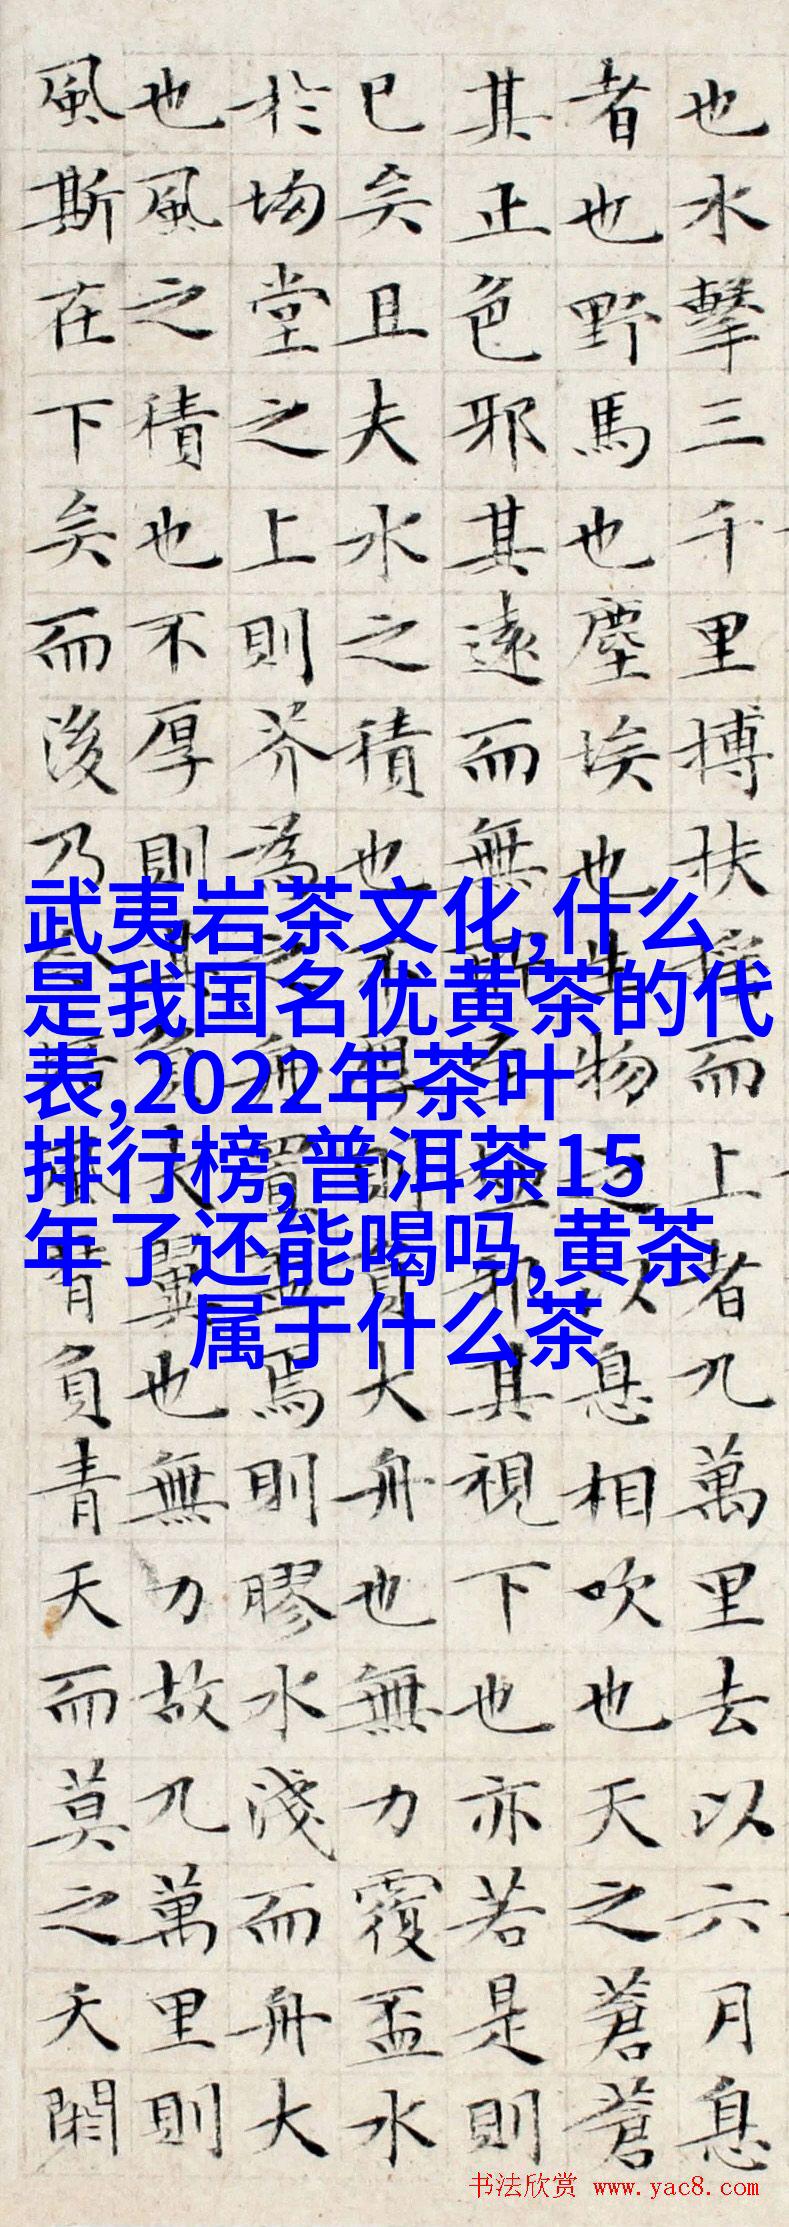 也水擊三千里搏扶搖而上者九萬里去以六月息
者也野馬也塵埃也生物之以息相吹也天之蒼蒼
其正色邪其遠而無所至極邪其視下也亦若是則
已矣且夫水之積也不厚則負大舟也無力覆盃水
於坳堂之上則芥為之舟置盃焉則膠水淺而舟大
也風之積也不厚則其負大翼也無力故九萬里則
風斯在下矣而後乃今培風背負青天而莫之夭閼
武夷岩茶文化,什么
是我国名优黄茶的代
表,2022年茶叶
排行榜,普洱茶15
年了还能喝吗,黄茶
属于什么茶
书法欣赏 www.yac8.com